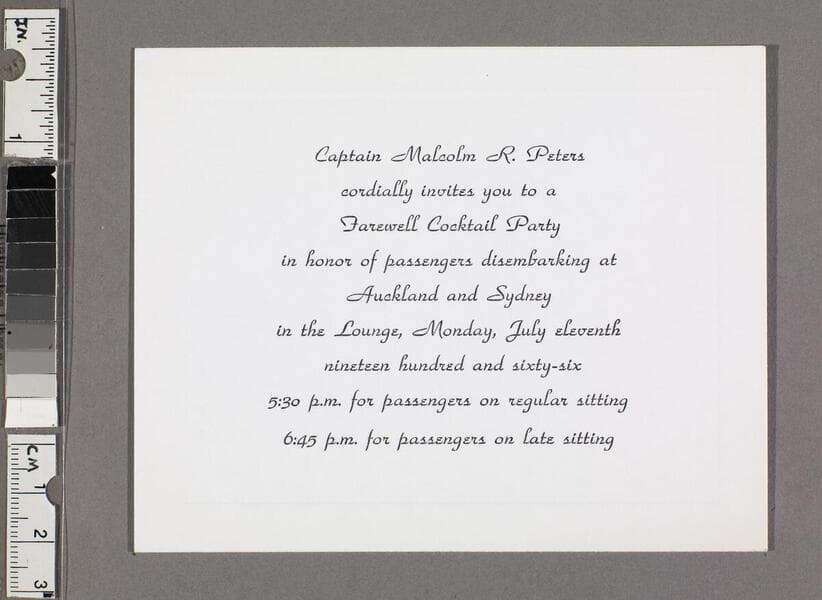 Captain Malcolm R. Peters
cordially invites you to a
Farewell Cocktail Party
in honor of passengers disembarking at
Auckland and Sydney
in the Lounge, Monday, July eleventh
nineteen hundred and sixty-six
5:30 p.m. for passengers on regular sitting
6:45 p.m. for passengers on late sitting
IN.
1
CM 1
2
3